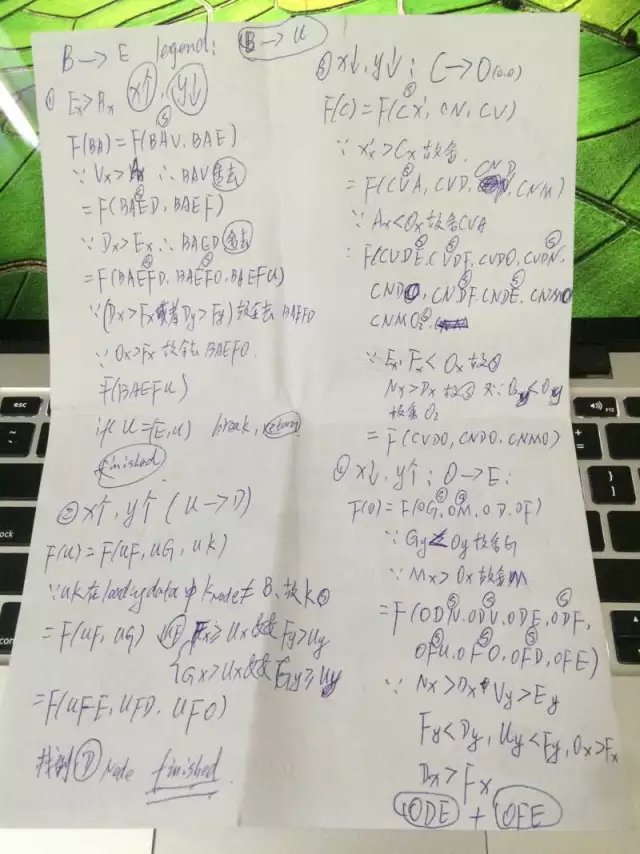 B → E legend: B → U
① Ex > Ax x个, y↓
F(BA) = F(BAV, BAE)
∵ Vx > Ax ∴ BAV舍去
= F(BAED, BAEF)
∵ Dx > Ex ∴ BAED舍去
= F(BAEFD, BAEFO, BAEFU)
∵ (Dx > Fx 或者 Dy > Fy) 故舍去 BAEFD
∵ Ox > Fx 故舍去 BAEFO.
F(BAEFU)
if U = (E, U) break, return
finished
② x个, y个 (U → D)
F(U) = F(UF, UG, UK)
∵ UK在loadingdata中 Knode ≠ B, 故K
= F(UF, UG) Fx > Ux && Fy > Uy
{Gx > Ux && Gy > Uy
= F(UFE, UFD, UFO)
找到 D Node finished.
x↓, y↓ : C → O(0,0)
F(C) = F(CX, CN, CV)
∵ Xx > Cx 故舍.
CND
= F(CVA, CVD, CNM)
∵ Ax < Ox 故舍CVA
= F(CVDE, CVDF, CVDO, CVDN,
CNDO, CNDF, CNDE, CNMO
CNMO₂
∵ Ex, Fx < Ox 故
Nx > Dx 故 又∵ O₂y < Oy
故舍 O₂
= F(CVDO, CNDO, CNMO)
x↓, y个 : O → E :
F(O) = F(OG, OM, OD, OF)
∵ Gy Oy 故舍G
∵ Mx > Ox 故舍M
= F(ODN, ODV, ODE, ODF,
OFU, OFO, OFD, OFE)
∵ Nx > Dx Vy > Ey
Fy < Dy, Uy < Fy, Ox > Fx
Dx > Fx
ODE + OFE
esc
F12